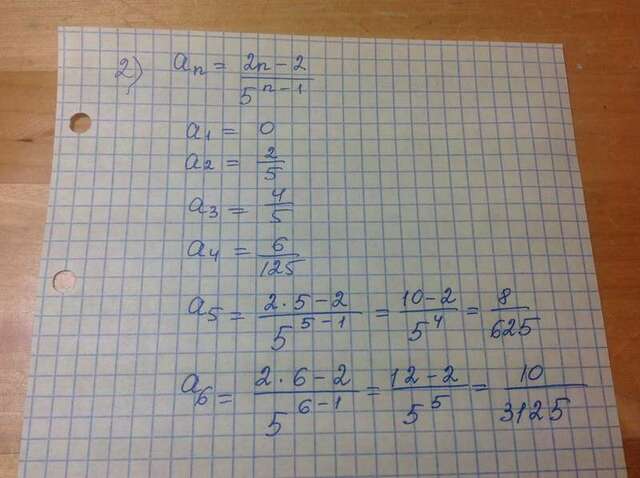 2) aₙ = (2n - 2)/(5ⁿ⁻¹)
a₁ = 0
a₂ = 2/5
a₃ = 4/5
a₄ = 6/125
a₅ = (2·5-2)/(5⁵⁻¹) = (10-2)/(5⁴) = 8/625
a₆ = (2·6-2)/(5⁶⁻¹) = (12-2)/(5⁵) = 10/3125